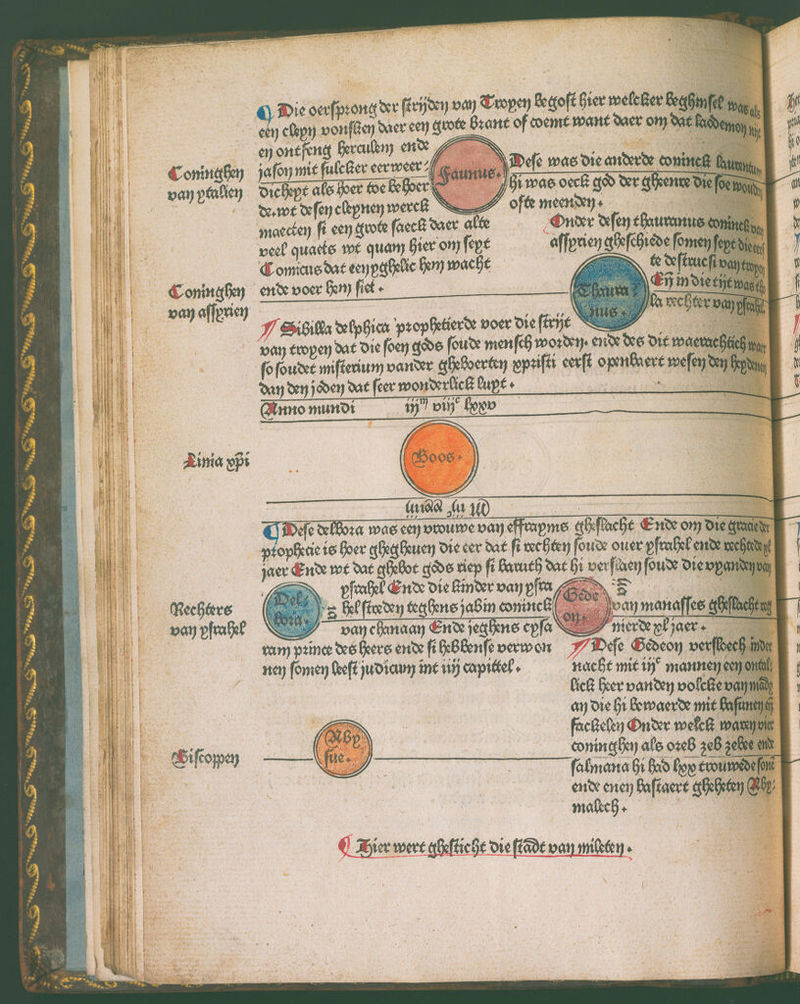 Die oersprong der strijden van Troyen begost hier welcker beghinsel was als
een cleyn voncken daer een grote brant of coemt want daer om dat laodemon niet
en ontfeng herculem ende
Coninghen
van ytalien
jason mit sulcker eerweer
dicheyt als hoer toe behoer
de. wt desen cleynen werck
maecten si een grote saeck daer alte
veel quaets wt quam hier om seyt
Comicus dat een yghelic hem wacht
ende voer hem siet.
Faunus.
Dese was die anderde coninck laurentum
hi was oeck god der gheenre die soe wouden
ofte meenden.
Onder desen thauranus coninck van
assyrien gheschiede somen seyt die eerste
te destructi van troyen
Eñ in die tijt was tho
la rechter van ysrahel
Coninghen
van assyrien
Thaura
nus.
Sibilla delphica prophetierde voer die strijt
van troyen dat die soen gods soude mensch worden. ende des dit waerachtich waer
so soudet misterium vander gheboerten xpristi eerst openbaert wesen den heydenen
dan den joden dat seer wonderlick luyt.
Anno mundi iijᵐ viijᶜ lxxv
Linia xp̄i
Boos.
Dese delbora was een vrouwe van effrayms gheslacht Ende om die gracie der
prophecie is hoer ghegheuen die eer dat si rechten soude ouer ysrahel ende rechtede xl
jaer Ende wt dat ghebot gods riep si barach dat hi verslaen soude die vyanden van
ysrahel Ende die kinder van ysra
Rechters
van ysrahel
Del
bora.
hel streden teghens jabin coninck
van chanaan Ende jeghens cysa
ram prince des heers ende si hebbense verwon
nen somen leest judicum int iiij capittel.
Gede
on.
van manasses gheslacht reg
nierde xl jaer.
Dese Gedeon versloech inder
nacht mit iijᶜ mannen een ontal
lick heer vanden volcke van mady
an die hi bewaerde mit basunen eñ
fackelen Onder welck waren vier
coninghen als oreb zeb zebee ende
salmana hi had lxx trouwede sone
ende enen bastaert gheheten Aby
malech.
Biscoppen
Aby
sue.
Hier wert ghesticht die stadt van mileten.